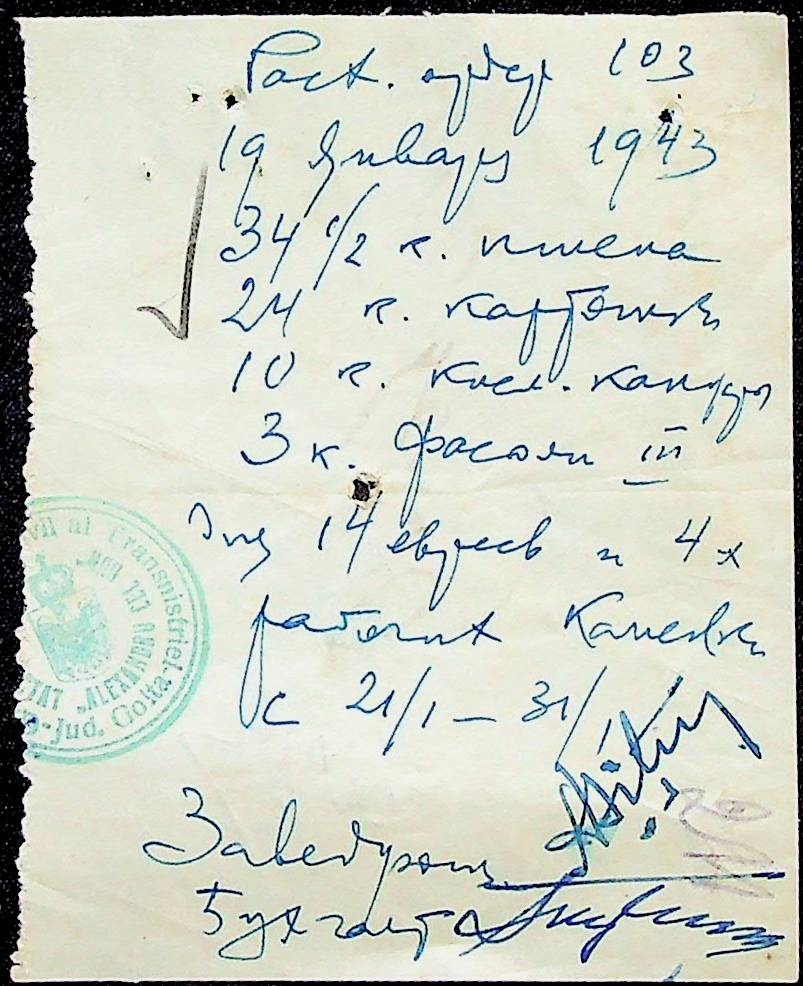 Расх. ордер 103
19 Января 1943
34 1/2 к. пшена
24 к. картошки
10 к. кисл. капусты
3 к. фасоли III
Для 14 евреев и 4х
рабочих
с 21/1 — 31/1
Заведующ.
Бухгалт
vil al Transnistriei
"ALEXANDRU CEL BUN"
-Jud. Golta